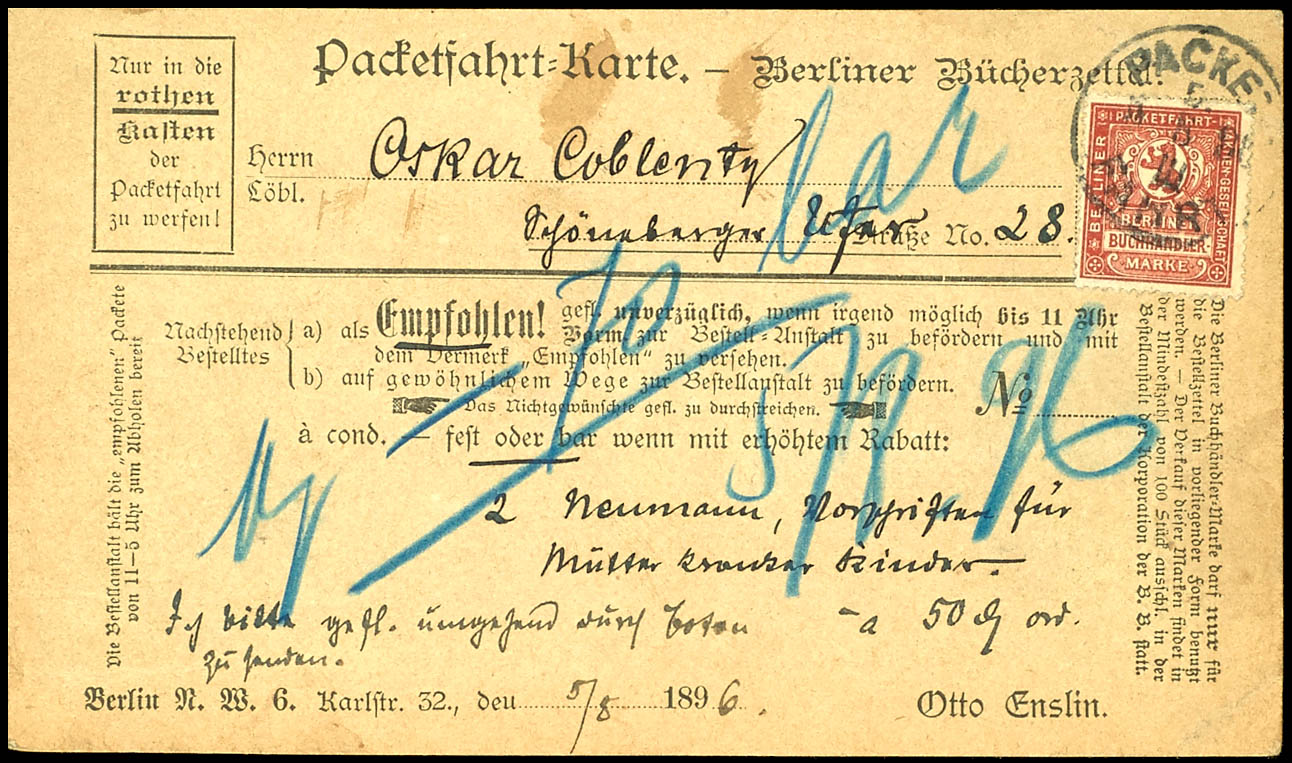 Nur in die
rothen
Kasten
der
Packetfahrt
zu werfen!
Packetfahrt=Karte. — Berliner Bücherzettel.
Herrn Oskar Coblentz
Löbl.
Schöneberger Ufer Straße No. 28.
bar
PACKE
PACKETFAHRT-
AKTIEN-GESELLSCHAFT
BERLINER
BERLINER
BUCHHÄNDLER-
MARKE
Nachstehend
Bestelltes
a) als Empfohlen! gefl. unverzüglich, wenn irgend möglich bis 11 Uhr
Vorm. zur Bestell-Anstalt zu befördern und mit
dem Vermerk „Empfohlen“ zu versehen.
b) auf gewöhnlichem Wege zur Bestellanstalt zu befördern.
Das Nichtgewünschte gefl. zu durchstreichen.
No
à cond. — fest oder bar wenn mit erhöhtem Rabatt:
2 Neumann, Vorschriften für
Mütter kranker Kinder.
à 50 ₰ ord.
Ich bitte gefl. umgehend durch boten
zu senden.
Berlin N. W. 6. Karlstr. 32., den 5/8 1896.
Otto Enslin.
Die Bestellanstalt hält die „empfohlenen“ Packete
von 11—5 Uhr zum Abholen bereit
Die Berliner Buchhändler-Marke darf nur für
die Bestellzettel in vorliegender Form benutzt
werden. — Der Verkauf dieser Marken findet in
der Mindestzahl von 100 Stück ausschl. in der
Bestellanstalt der Korporation der B. B. statt.